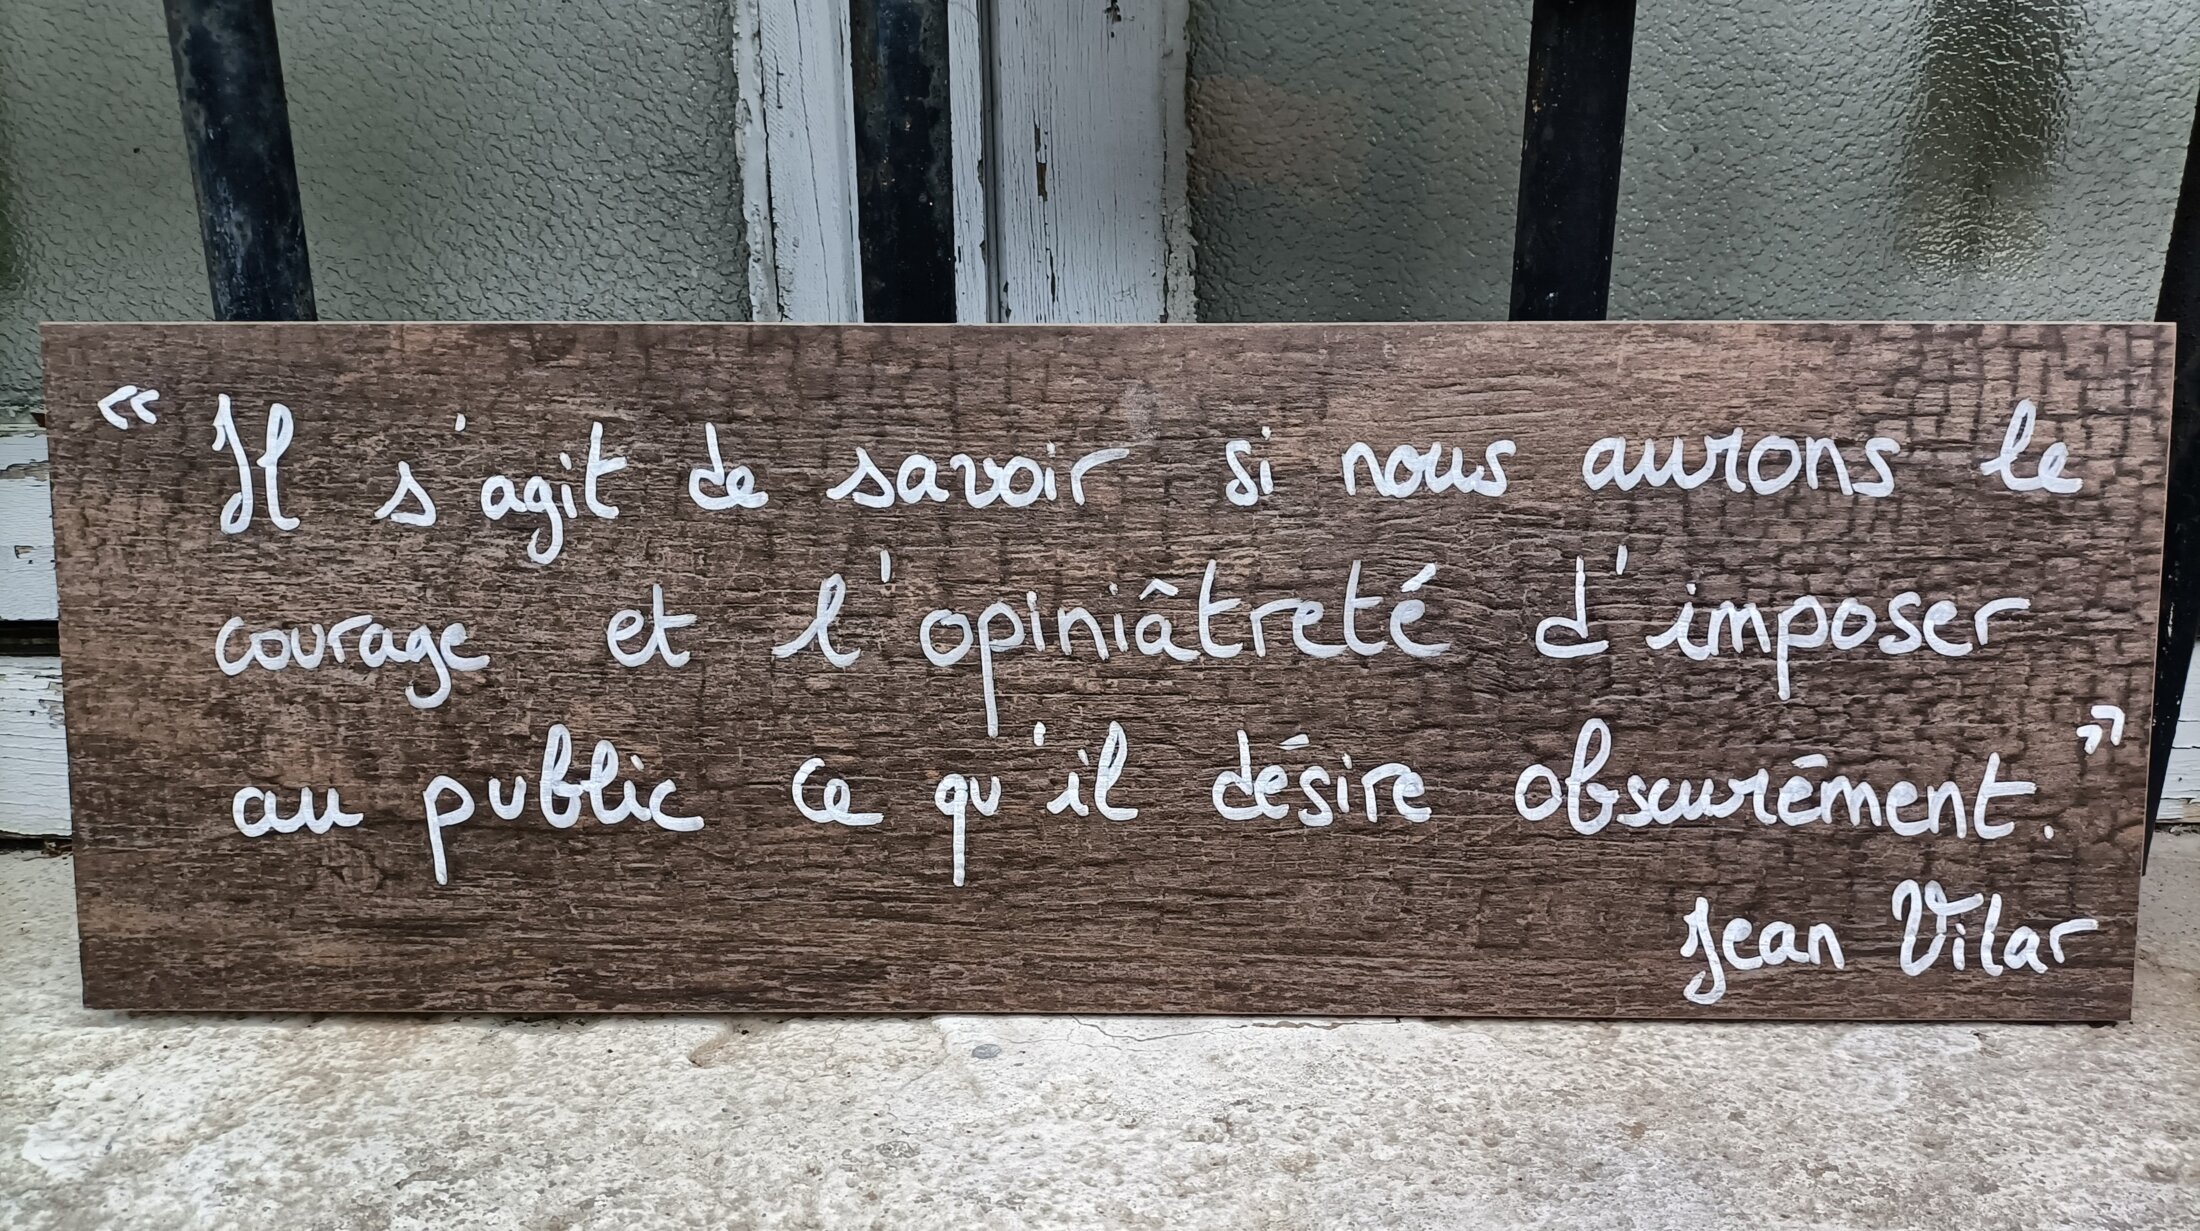 « Il s'agit de savoir si nous aurons le
courage et l'opiniâtreté d'imposer
au public ce qu'il désire obscurément. »
Jean Vilar